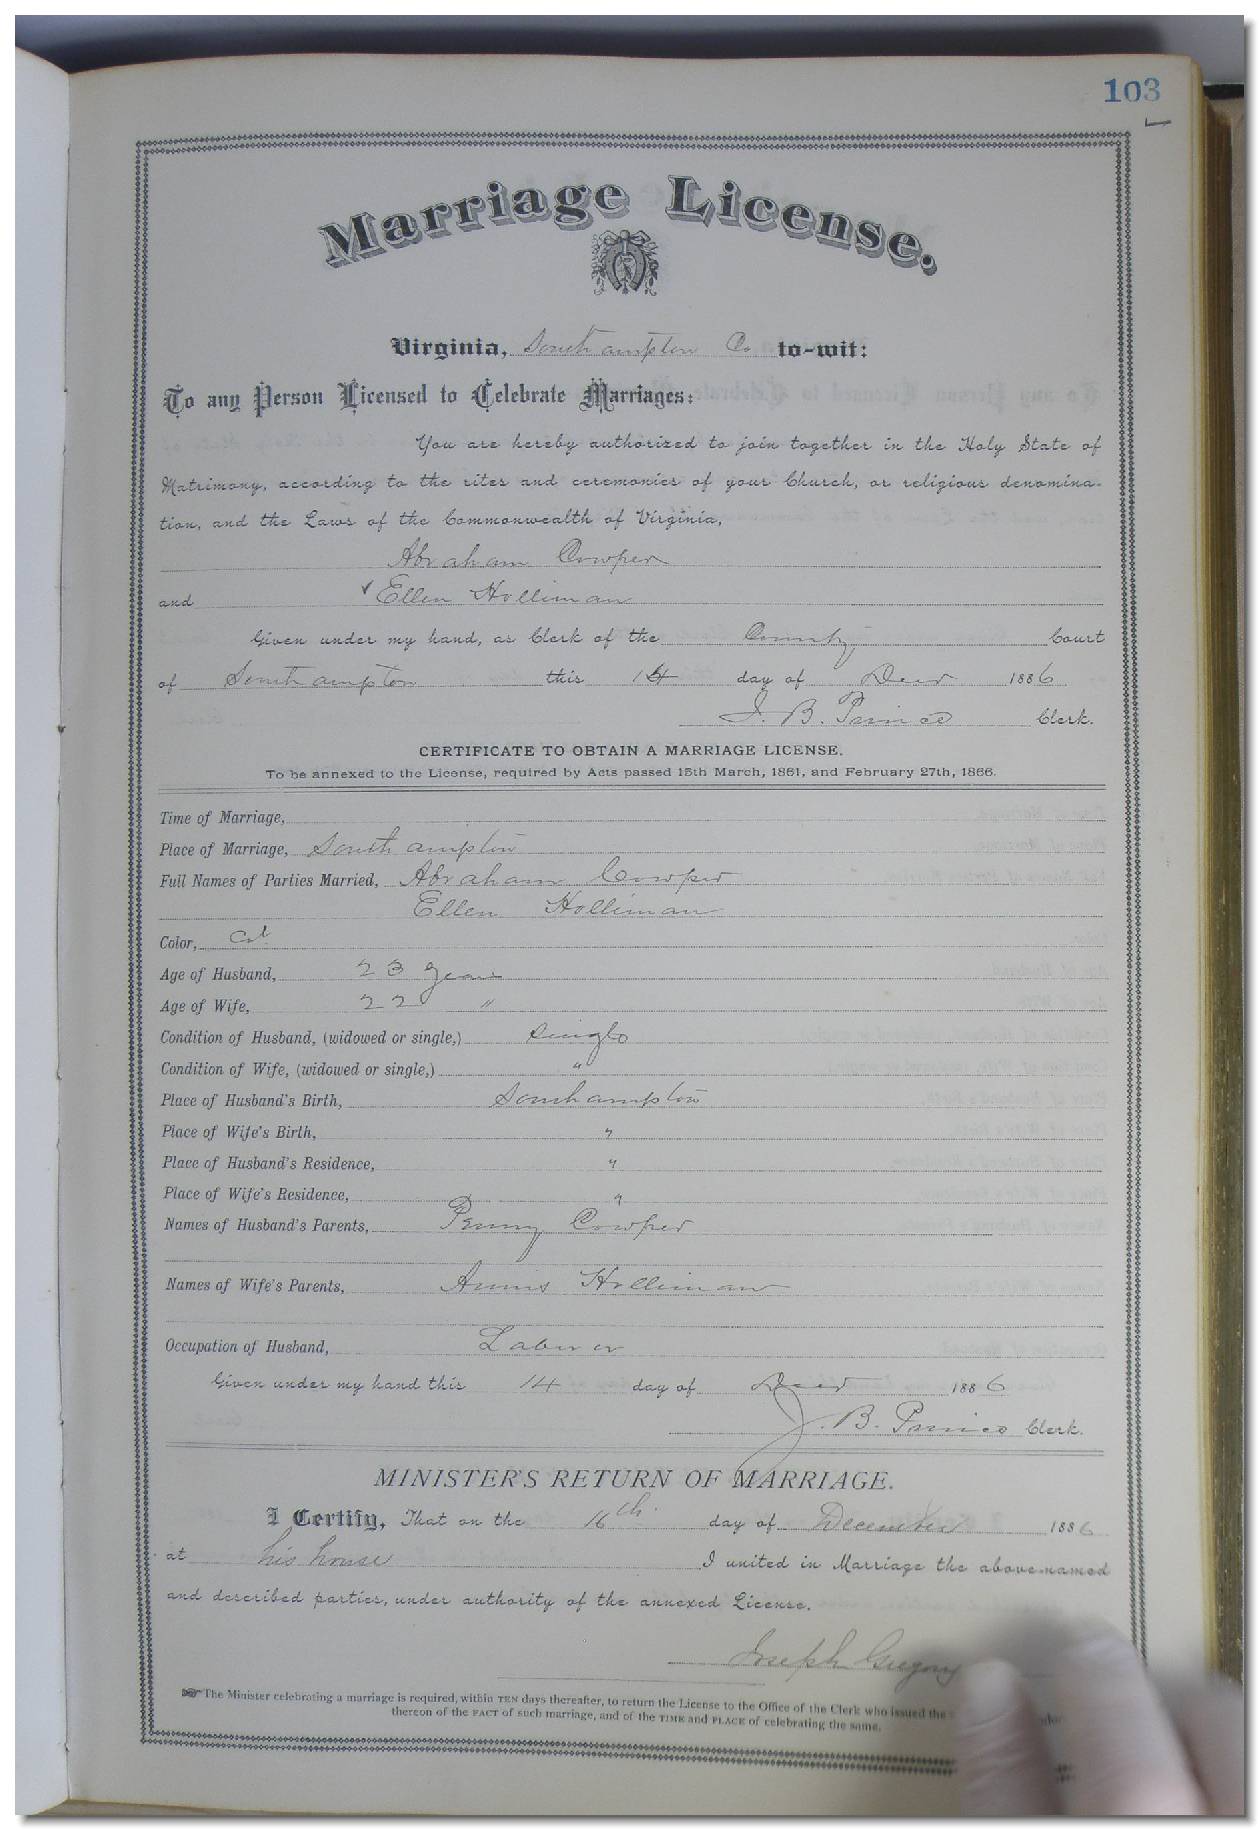 103
Marriage License.
Virginia, Southampton Co to-wit:
To any Person Licensed to Celebrate Marriages:
You are hereby authorized to join together in the Holy State of
Matrimony, according to the rites and ceremonies of your Church, or religious denomina-
tion, and the Laws of the Commonwealth of Virginia,
Abraham Cowper
and Ellen Holliman
Given under my hand, as Clerk of the County Court
of Southampton this 14 day of Decr 1886
J. B. Prince Clerk.
CERTIFICATE TO OBTAIN A MARRIAGE LICENSE.
To be annexed to the License, required by Acts passed 15th March, 1861, and February 27th, 1866.
Time of Marriage,
Place of Marriage, Southampton
Full Names of Parties Married, Abraham Cowper
Ellen Holliman
Color, Cold
Age of Husband, 23 years
Age of Wife, 22 "
Condition of Husband, (widowed or single,) Single
Condition of Wife, (widowed or single,) "
Place of Husband's Birth, Southampton
Place of Wife's Birth, "
Place of Husband's Residence, "
Place of Wife's Residence, "
Names of Husband's Parents, Penny Cowper
Names of Wife's Parents, Annis Holliman
Occupation of Husband, Laborer
Given under my hand this 14 day of Decr 1886
J. B. Prince Clerk.
MINISTER'S RETURN OF MARRIAGE.
I Certify, That on the 16th day of December 1886
at his house I united in Marriage the above-named
and described parties, under authority of the annexed License.
Joseph Gregory
The Minister celebrating a marriage is required, within TEN days thereafter, to return the License to the Office of the Clerk who issued the
thereon of the FACT of such marriage, and of the TIME and PLACE of celebrating the same.